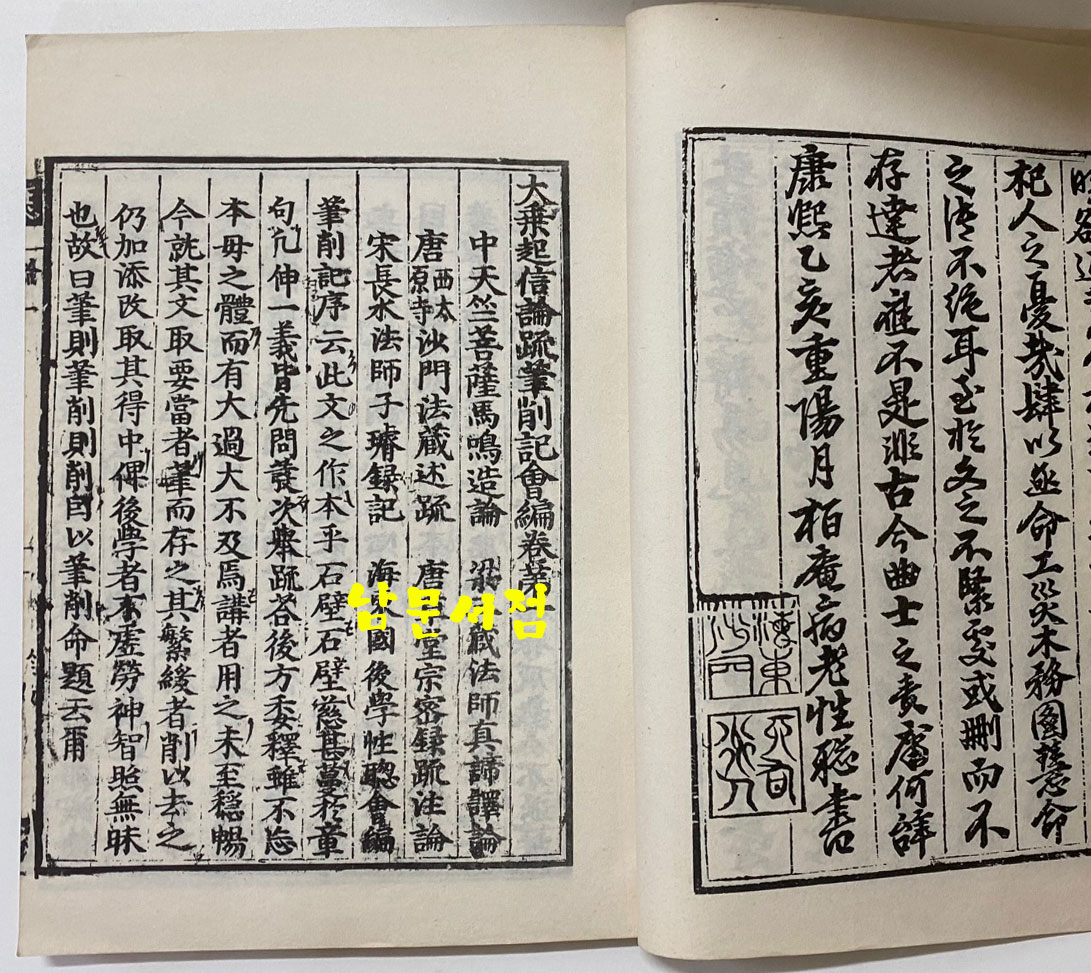 杞人之憂哉肆以亟命工災木務圖慧命
之流不絶耳至於文之不緊處或刪而不
存達者雇不是非古今曲士之責庸何辞
康熙乙亥重陽月栢庵病老性聡書
大乗起信論疏筆削記會編卷第一
中天竺菩薩馬鳴造論 梁 藏法師真諦譯論
唐西太原寺沙門法藏述疏 唐 堂宗密録疏注論
宋長水法師子璿録記 海東國後學性聰會編
筆削記序云此文之作本乎石壁石壁慈甚蔓於章
句凡伸一義皆先問發次擧疏答後方委釋雖不忘
本母之體而有大過大不及焉講者用之未至穩暢
今就其文取要當者筆而存之其繁緩者削以去之
仍加添改取其得中俾後學者不虚勞神智照無昧
也故曰筆則筆削則削因以筆削命題云爾
남문서점